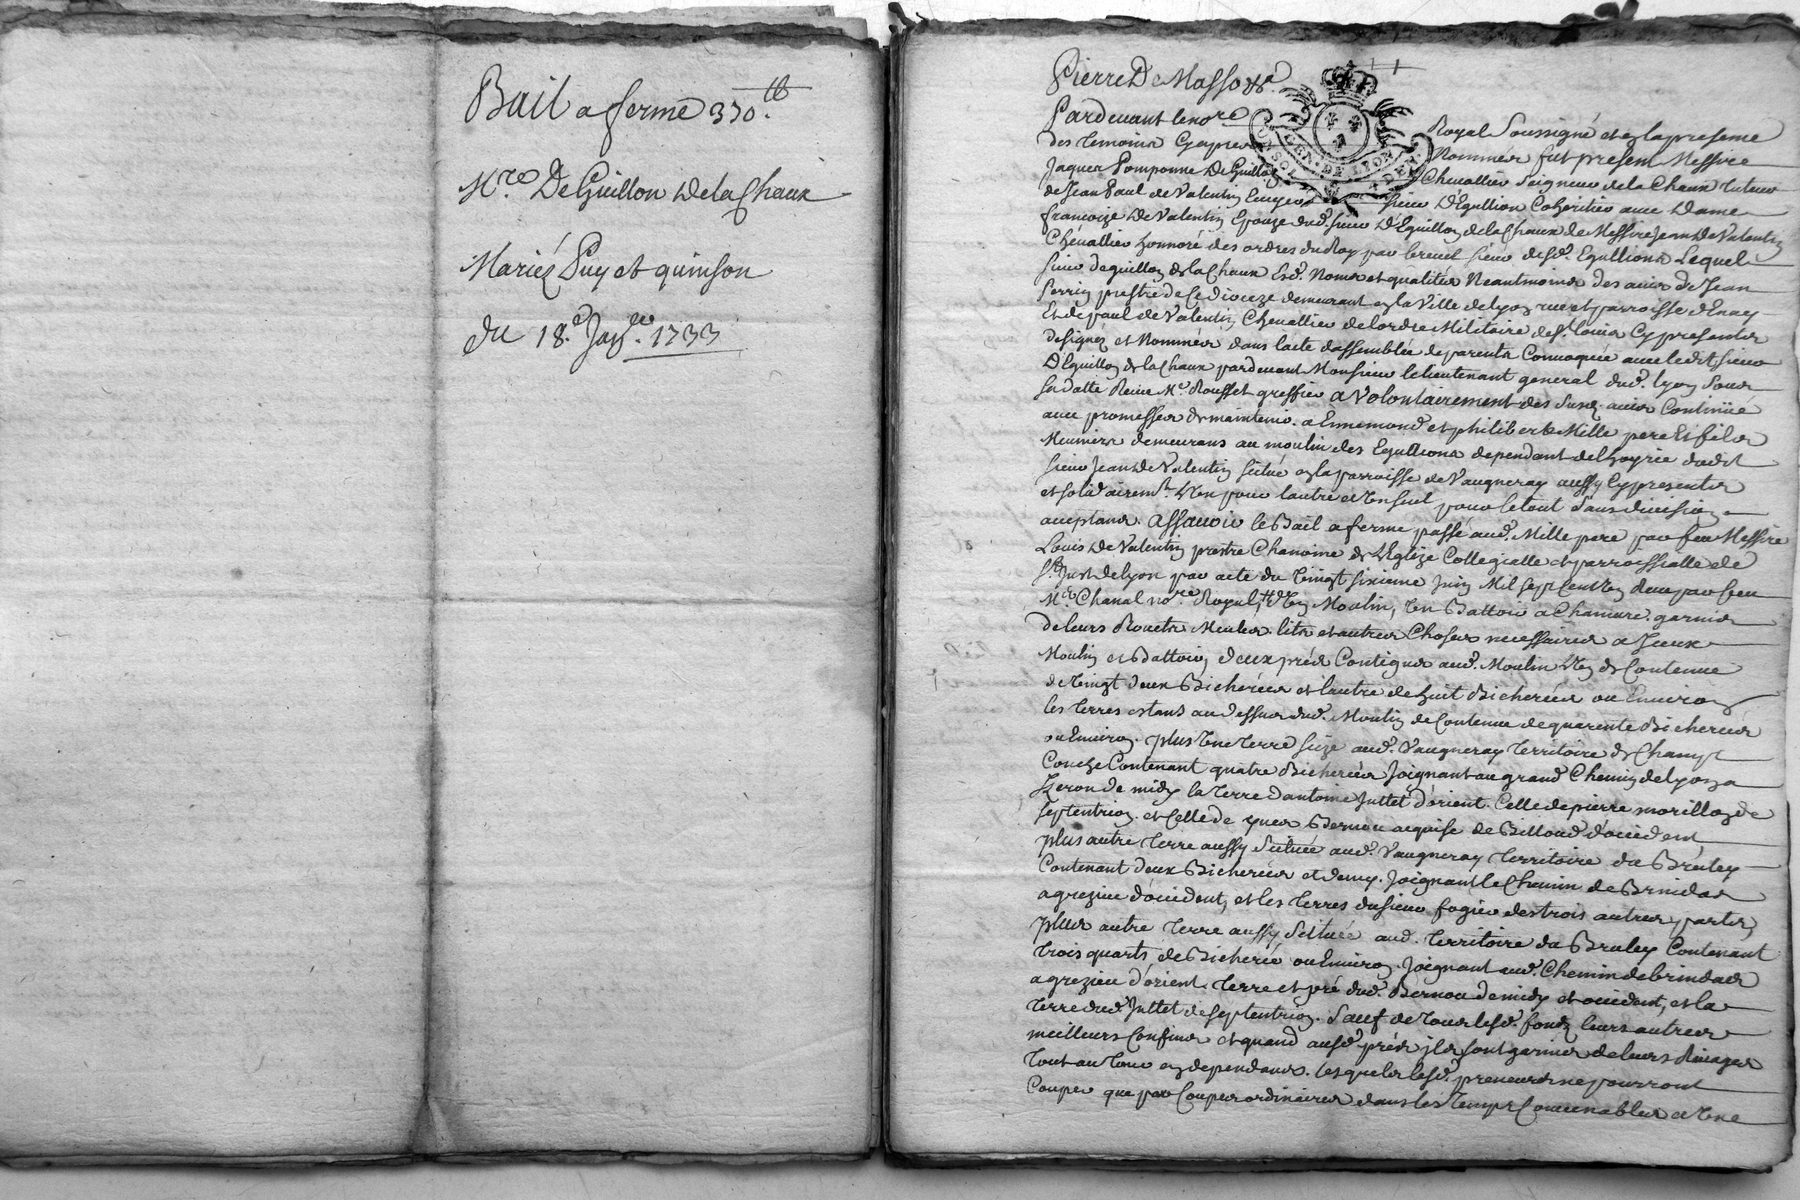 Bail a ferme 330.tt
Mre. De Guillon De la Chaux
Mariés Puy et quinson
du 18.e Janv.re 1733
Pierre De Masso &a
Pardevant le nore Royal Soussigné et en la presence
des temoins Cy apres Nommés fut present Messire
Jaques Pomponne De Guillon Chevallier Seigneur de la Chaux tuteur
de Jean Paul de Valentin Ecuyer Sieur D'Eguillion Coheritier avec Dame
françoise De Valentin Epouze dud. Sieur D'Eguillon de la Chaux de Messire Jean De Valentin
Chevallier honnoré des ordres du Roy par brevet Sieur desd. Eguillions Lequel
Sieur deguillon de la Chaux Esd. Noms et qualités Neantmoins des avis de Jean
Perrin prestre de Ce Dioceze demeurant en la Ville de Lyon rue et parroisse d'Enay
Et de paul de Valentin Chevallier de lordre Militaire de St. Louis Cy presents
designés et Nommés dans lacte dassemblée de parents Convoquée avec ledit Sieur
D'Eguillon de la Chaux pardevant Monsieur le lieutenant general dud. Lyon Sous
Sa datte Reçue Me. Rousset greffier a Volontairement des Susd. avis Continüé
avec promesses de maintenir. a Ennemond et philibert Mille pere Et fils
Meuniers demeurans au moulin des Eguillions dependant de l'hoyrie dudit
Sieur Jean De Valentin Scitué en la parroisse de Vaugneray aussy Cy presents
et solidairemt. L'Un pour lautre et Un Seul pour le tout Sans division
acceptans. Assavoir le Bail a ferme passé aud. Mille pere par feu Messire
Louis De Valentin prestre Chanoine de L'Eglize Collegialle et parroissialle de
St. Just de Lyon par acte du Vingt sixieme Juin Mil Sept Cent Vingt deux par feu
Me. Chanal nore. Royal, d'Un Moulin, Un Battoir a Chanvre garnis
de leurs Rouets Meules lits et autres Choses necessaires a Iceux
Moulin et Battoir, deux prés Contigus aud. Moulin L'Un de Contenue
de Vingt deux Bicherées et lautre de huit Bicherées ou Environ
les terres estans au dessus dud. Moulin de Contenue de quarente Bicherées
ou Environ. plus Une terre Size aud. Vaugneray territoire de Champt
Couche Contenant quatre Bicherées Joignant au grand Chemin de Lyon a
Izeron de midy la terre d'antoine Juttet d'orient. Celle de pierre morillon de
septentrion et Celle de Bernou acquise de Billoud d'occident
plus autre terre aussy Scituée aud. Vaugneray territoire du Bruley
Contenant deux Bicherées et demy. Joignant le Chemin de Brindas
a grezieu d'occident, et les terres du Sieur fogier des trois autres parts
plus autre terre aussy Scituée aud. territoire du Bruley Contenant
trois quarts de Bicherée ou Environ. Joignant aud. Chemin de brindas
a grezieu d'orient. terre et pré dud. Bernou de midy et occident, et la
terre dud. Juttet de septentrion. Sauf de tous lesd. fonds leurs autres
meilleurs Confins et quand ausd. prés ils sont garnis de leurs Rivages
tout au tour en dependans. lesquels lesd. preneurs ne pourront
Couper que par Coupes ordinaires dans les temps Convenables et Une